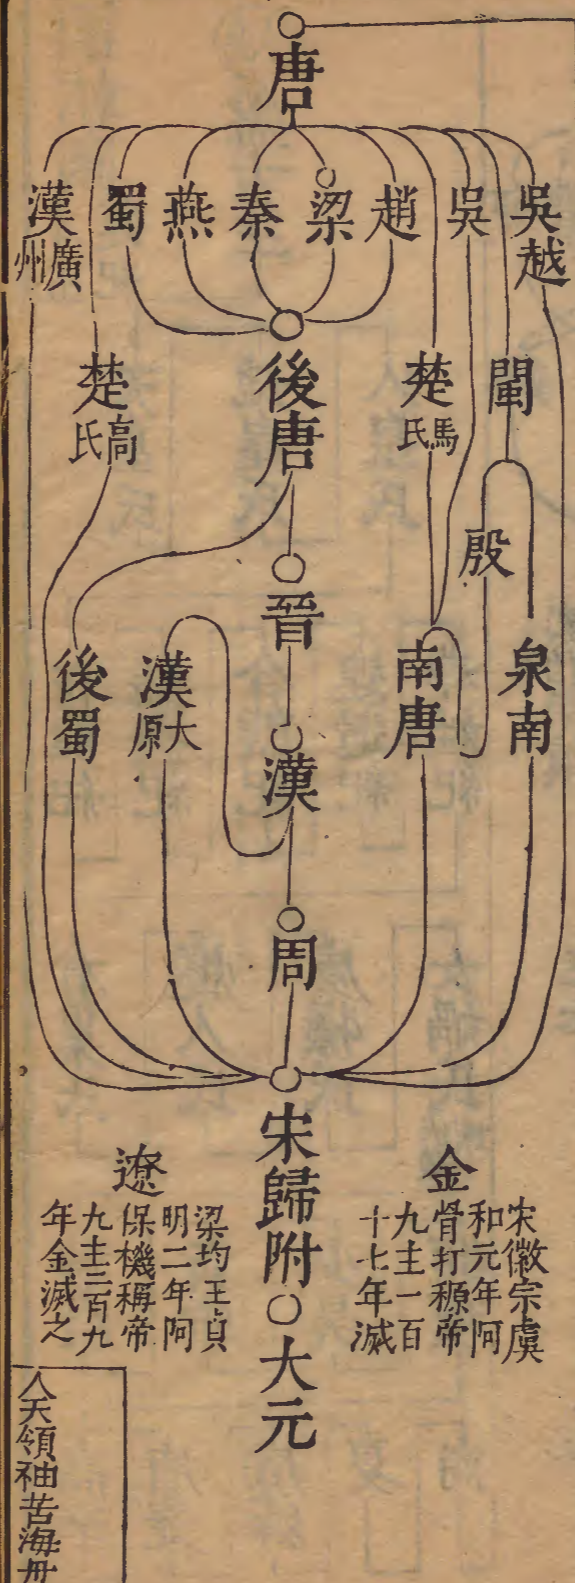 唐
吳越
吳
趙
梁
秦
燕
蜀
漢
廣州
閩
楚
馬氏
後唐
楚
高氏
殷
晉
泉南
南唐
漢
大原
後蜀
漢
周
宋歸附
大元
金
宋徽宗虞
和元年阿
骨打稱帝
九主一百
十七年滅
遼
梁均王貞
明二年阿
保機稱帝
九主二百九
年金滅之
人天領袖苦海舟